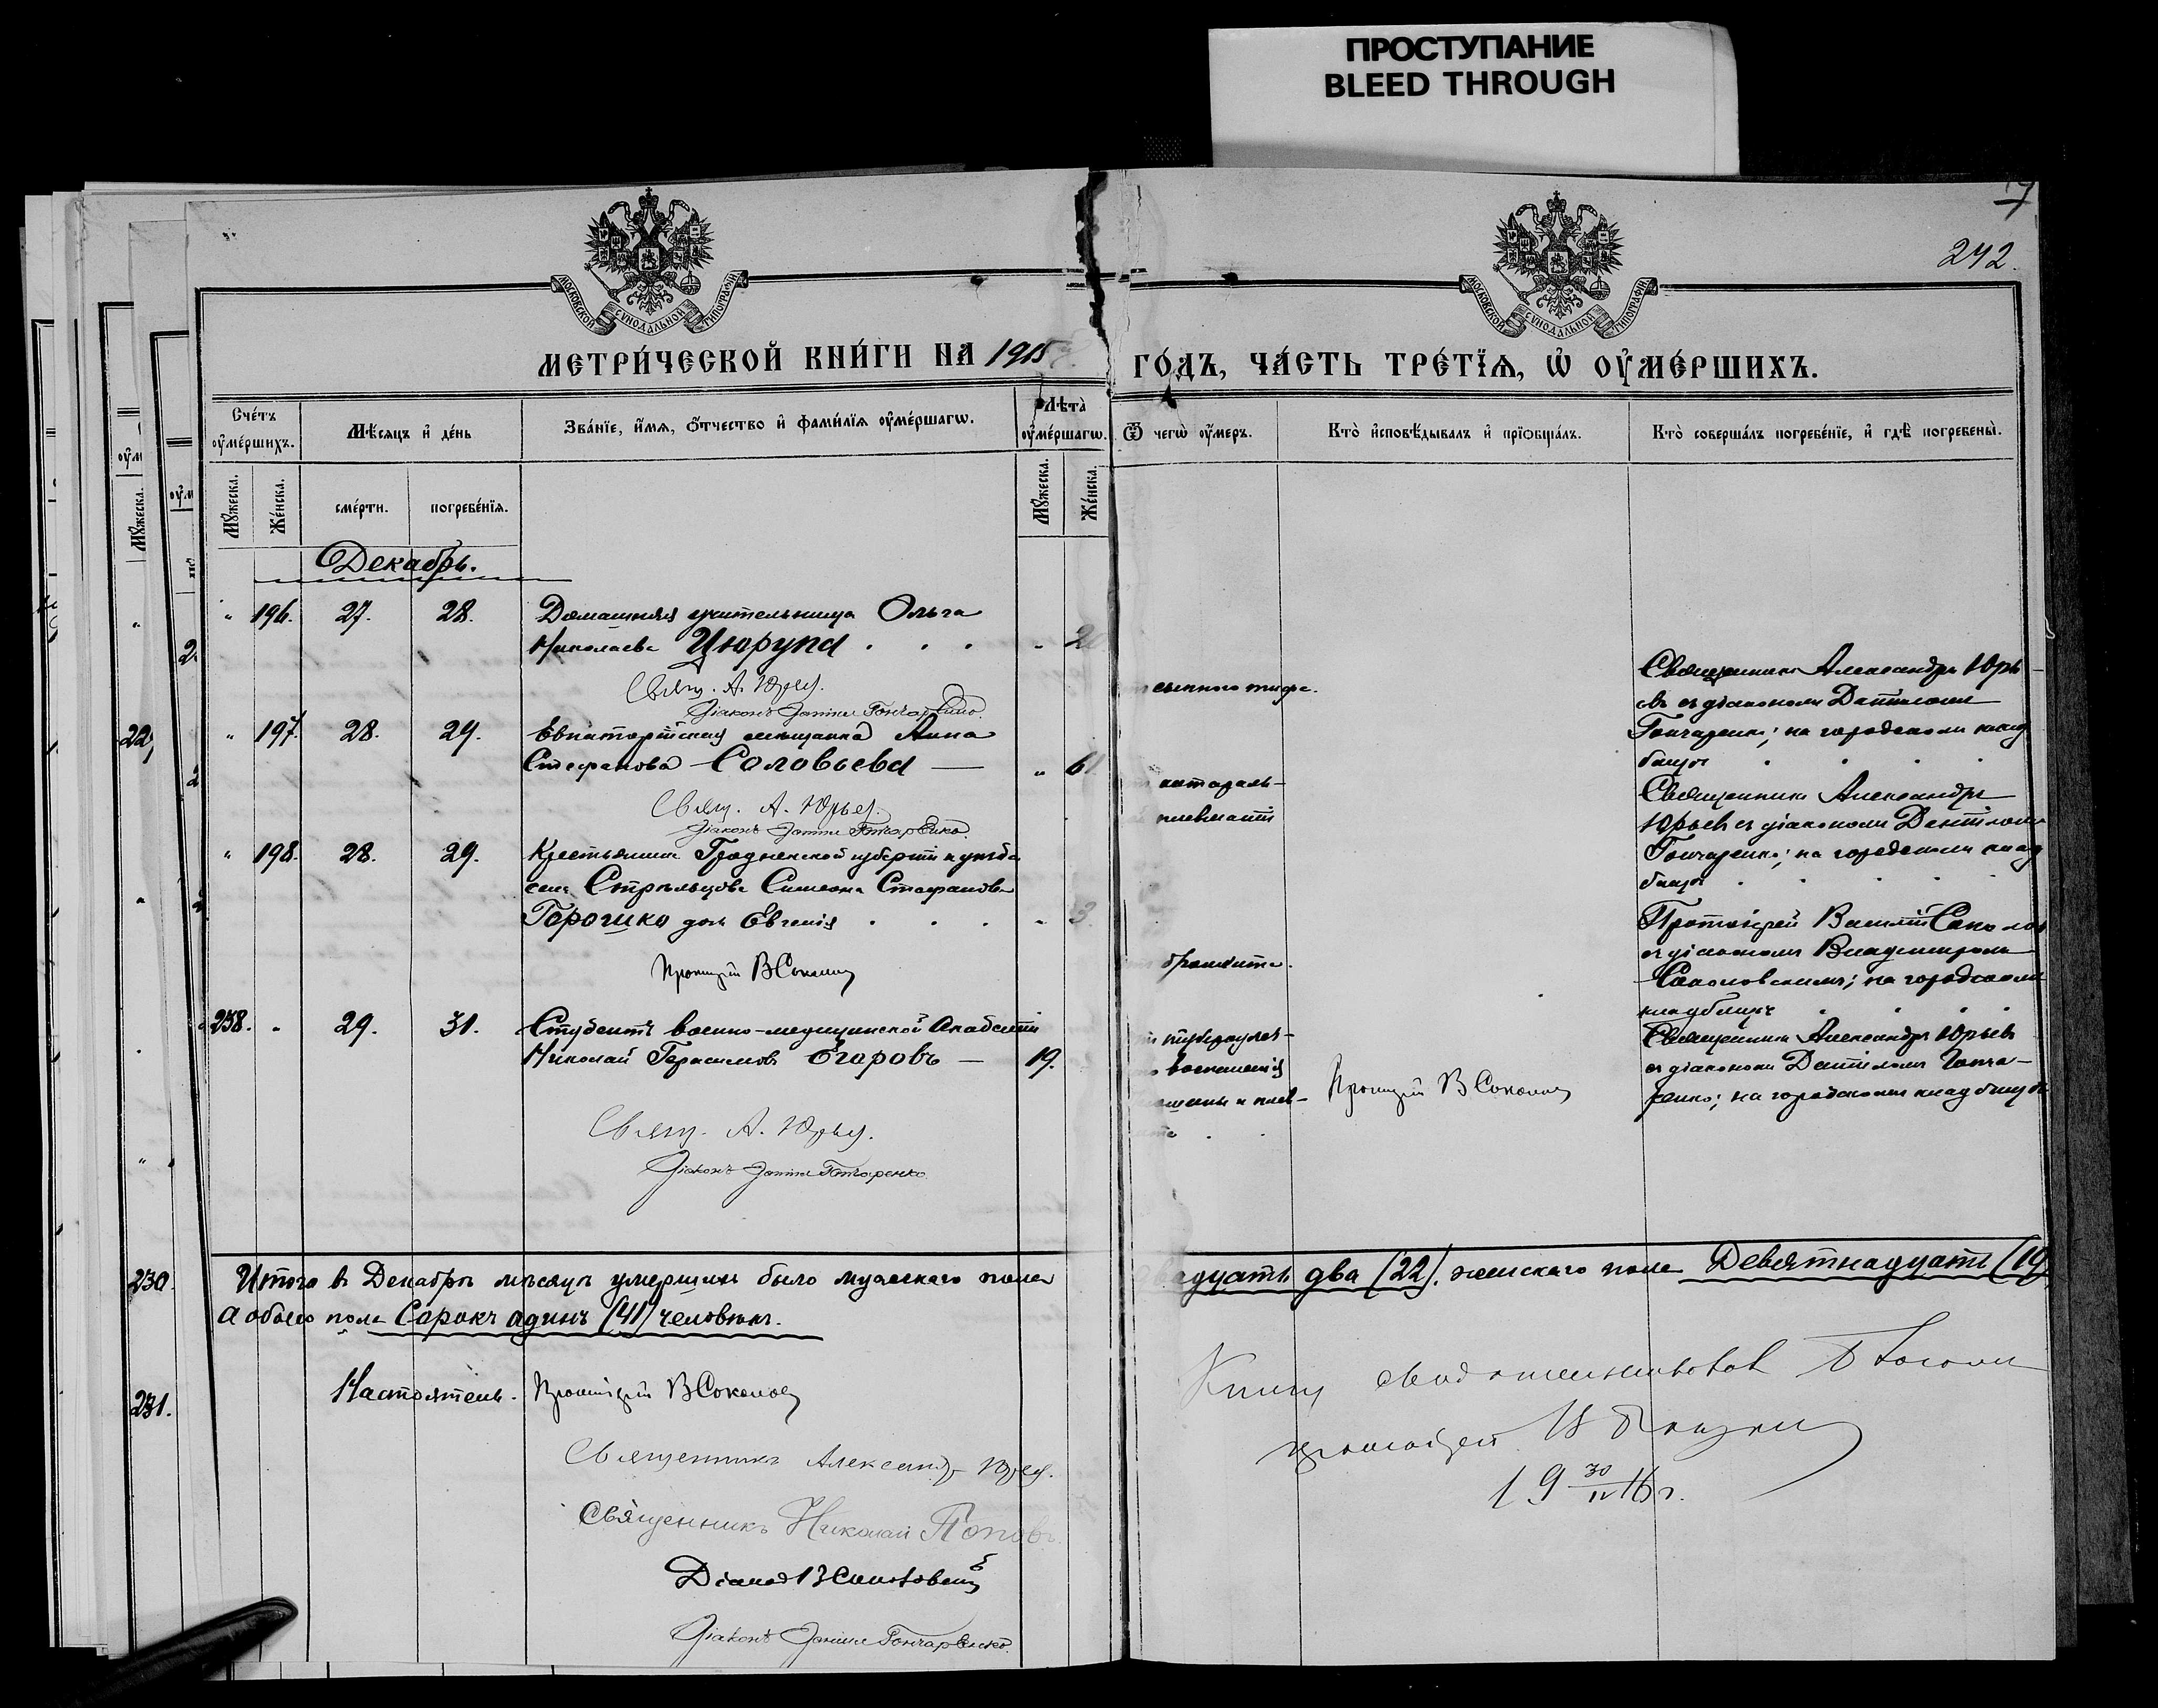 ПРОСТУПАНИЕ
BLEED THROUGH
242.
МОСКОВСКОЙ СУНОДАЛЬНОЙ ТИПОГРАФІИ
МОСКОВСКОЙ СУНОДАЛЬНОЙ ТИПОГРАФІИ
МЕТРИ́ЧЕСКОЙ КНИ́ГИ НА 1915
ГО́ДЪ, ЧА́СТЬ ТРЕ́ТЇѦ, Ѡ҆ ОУ҆МЕ́РШИХЪ.
Сче́тъ оу҆ме́ршихъ.
Мѣ́сяцъ и҆ де́нь
Зва́нїе, и҆́мя, ѻ҆́тчество и҆ фами́лїя оу҆ме́ршагѡ.
Лѣта̀ оу҆ме́ршагѡ.
Ѿ чегѡ̀ оу҆́меръ.
Кто̀ и҆сповѣ́дывалъ и҆ прїѻбща́лъ.
Кто̀ соверша́лъ погребе́нїе, и҆ гдѣ̀ погребены̀.
Мꙋ́жеска.
Же́нска.
сме́рти.
погребе́нїя.
Мꙋ́жеска.
Же́нска.
Декабрь.
" 196. 27. 28. Домашняя учительница Ольга
Николаева Цюрупа . . . "
Свящ. А. Юрьев.
Діаконъ Даніилъ Гончаренко.
сыпного тифа.
Священникъ Александръ Юрь-
евъ съ діакономъ Даніиломъ
Гончаренко; на городскомъ клад
бищѣ . . . .
" 197. 28. 29. Евпаторійская мѣщанка Анна
Стефанова Соловьева — "
Свящ. А. Юрьев.
Діаконъ Даніилъ Гончаренко.
катараль-
пневмоніи
Священникъ Александръ
Юрьевъ съ діакономъ Даніиломъ
Гончаренко; на городскомъ клад
бищѣ . . . .
" 198. 28. 29. Крестьянина Гродненской губерніи и уѣзда
села Стрѣльцова Симеона Стефанова
Горошко дочь Евгенія . . . " 3.
Протоіерей В Соколов
бронхита.
Протоіерей Василій Соколов
съ діакономъ Владимиромъ
Соколовскимъ; на городскомъ
кладбищѣ . . .
238. " 29. 31. Студентъ военно-медицинской Академіи
Николай Герасимовъ Егоровъ — 19.
Свящ. А. Юрьев.
Діаконъ Даніилъ Гончаренко
туберкулез-
воспаленія
и плев-
Протоіерей В Соколов
Священникъ Александръ Юрьевъ
съ діакономъ Даніиломъ Гонча-
ренко; на городскомъ кладбищѣ
Итого въ Декабрѣ мѣсяцѣ умершихъ было мужескаго пола
дцать два (22). женскаго пола Девятнадцать (19)
а обоего пола Сорокъ одинъ (41) человѣкъ.
Настоятель. Протоіерей В Соколов
Священникъ Александръ Юрьев.
Священникъ Николай Поповъ.
Діаконъ В Соколовскій
Діаконъ Даніилъ Гончаренко.
Книгу свидѣтельствовалъ
протоіерей
19 30/IV 16 г.
22
230.
231.